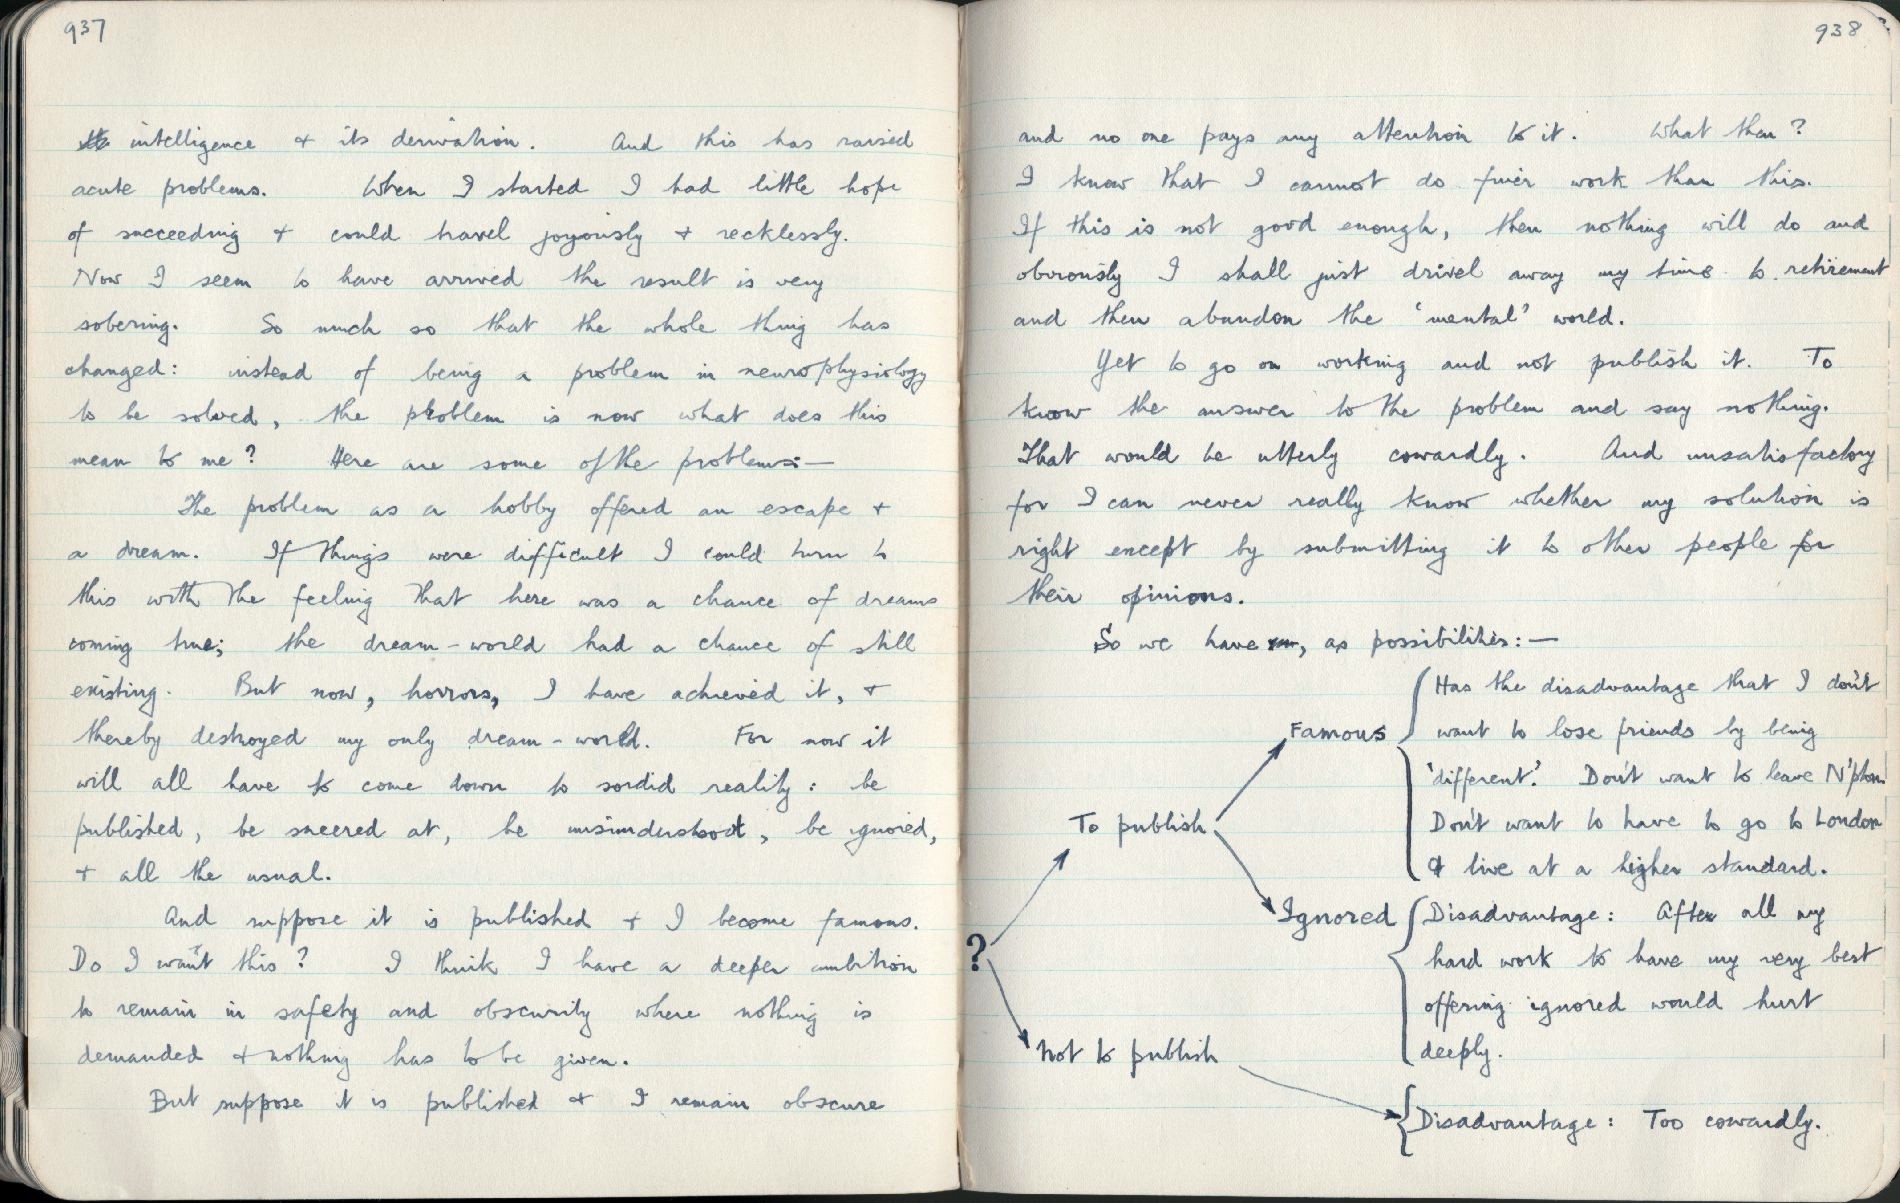 937
intelligence & its derivation. And this has raised
acute problems. When I started I had little hope
of succeeding & could travel joyously & recklessly.
Now I seem to have arrived the result is very
sobering. So much so that the whole thing has
changed: instead of being a problem in neurophysiology
to be solved, the problem is now what does this
mean to me? Here are some of the problems:—
The problem as a hobby offered an escape &
a dream. If things were difficult I could turn to
this with the feeling that here was a chance of dreams
coming true; the dream-world had a chance of still
existing. But now, horrors, I have achieved it, &
thereby destroyed my only dream-world. For now it
will all have to come down to sordid reality: be
published, be sneered at, be misunderstood, be ignored,
& all the usual.
And suppose it is published & I become famous.
Do I want this? I think I have a deeper ambition
to remain in safety and obscurity where nothing is
demanded & nothing has to be given.
But suppose it is published & I remain obscure
938
and no one pays any attention to it. What then?
I know that I cannot do finer work than this.
If this is not good enough, then nothing will do and
obviously I shall just drivel away my time to retirement
and then abandon the 'mental' world.
Yet to go on working and not publish it. To
know the answer to the problem and say nothing.
That would be utterly cowardly. And unsatisfactory
for I can never really know whether my solution is
right except by submitting it to other people for
their opinions.
So we have, as possibilities:—
Has the disadvantage that I don't
Famous want to lose friends by being
'different'. Don't want to leave N'pton.
To publish Don't want to have to go to London
& live at a higher standard.
Ignored Disadvantage: After all my
? hard work to have my very best
offering ignored would hurt
Not to publish deeply.
Disadvantage: Too cowardly.